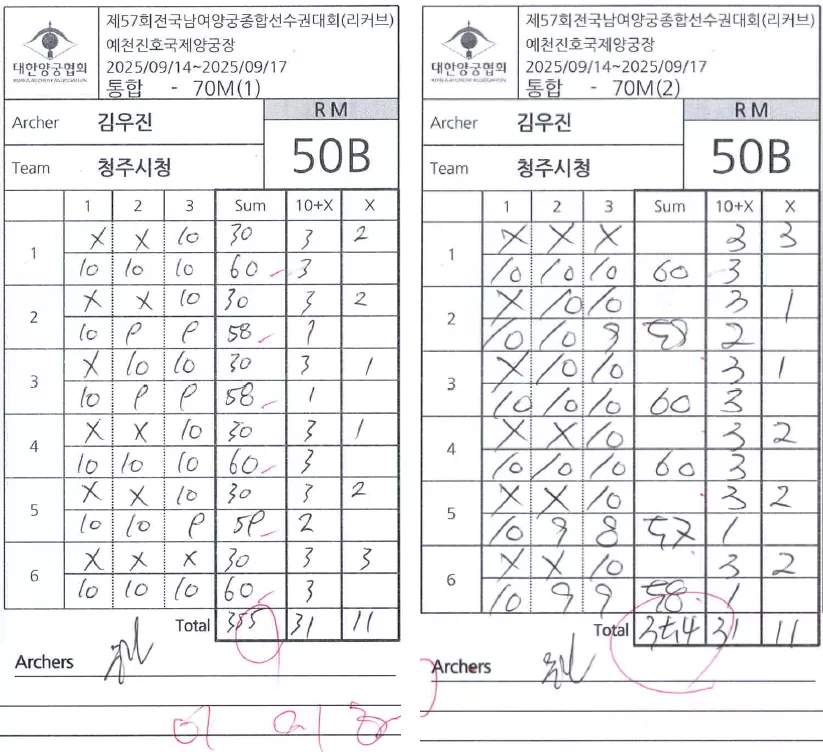 대한양궁협회
KOREA ARCHERY ASSOCIATION
제57회전국남여양궁종합선수권대회(리커브)
예천진호국제양궁장
2025/09/14~2025/09/17
통합 - 70M(1)
Archer 김우진
RM
50B
Team 청주시청
1 2 3 Sum 10+X X
1 X X 10 30 3 2
10 10 10 60 3
2 X X 10 30 3 2
10 9 9 58 1
3 X 10 10 30 3 1
10 9 9 58 1
4 X X 10 30 3 1
10 10 10 60 3
5 X X 10 30 3 2
10 10 9 59 2
6 X X X 30 3 3
10 10 10 60 3
Total 355 31 11
Archers
대한양궁협회
KOREA ARCHERY ASSOCIATION
제57회전국남여양궁종합선수권대회(리커브)
예천진호국제양궁장
2025/09/14~2025/09/17
통합 - 70M(2)
Archer 김우진
RM
50B
Team 청주시청
1 2 3 Sum 10+X X
1 X X X 3 3
10 10 10 60 3
2 X 10 10 3 1
10 10 9 59 2
3 X 10 10 3 1
10 10 10 60 3
4 X X 10 3 2
10 10 10 60 3
5 X X 10 3 2
10 9 8 57 1
6 X X 10 3 2
10 9 9 58 1
Total 354 31 11
Archers